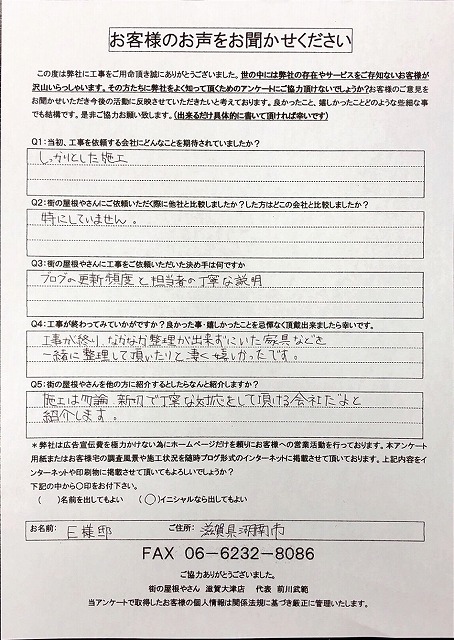 お客様のお声をお聞かせください
この度は弊社に工事をご用命頂き誠にありがとうございました。世の中には弊社の存在やサービスをご存知ないお客様が
沢山いらっしゃいます。その方たちに弊社をよく知って頂くためのアンケートにご協力頂けないでしょうか?お客様のご意見を
お聞かせいただき今後の活動に反映させていただきたいと考えております。良かったこと、嬉しかったことどのような些細な事
でも結構です。是非ご協力お願い致します。(出来るだけ具体的に書いて頂ければ幸いです)
Q1:当初、工事を依頼する会社にどんなことを期待されていましたか?
しっかりとした施工
Q2:街の屋根やさんにご依頼いただく際に他社と比較しましたか?した方はどこの会社と比較しましたか?
特にしていません。
Q3:街の屋根やさんに工事をご依頼いただいた決め手は何ですか
ブログの更新頻度と担当者の丁寧な説明
Q4:工事が終わってみていかがですか?良かった事・嬉しかったことを忌憚なく頂戴出来ましたら幸いです。
工事が終り、なかなか整理が出来ずにいた家具などを
一緒に整理して頂いたりと凄く嬉しかったです。
Q5:街の屋根やさんを他の方に紹介するとしたらなんと紹介しますか?
施工は勿論、親切で丁寧な対応をして頂ける会社だよと
紹介します。
*弊社は広告宣伝費を極力かけない為にホームページだけを頼りにお客様への営業活動を行っております。本アンケート
用紙またはお客様宅の調査風景や施工状況を随時ブログ形式のインターネットに掲載させて頂いております。上記内容をイ
ンターネットや印刷物に掲載させて頂いてもよろしいでしょうか?
下記の中から〇印をお付下さい。
( )名前を出してもよい (〇)イニシャルなら出してもよい
お名前: E様邸 ご住所: 滋賀県湖南市
FAX 06-6232-8086
ご協力ありがとうございました。
街の屋根やさん 滋賀大津店 代表 前川武範
当アンケートで取得したお客様の個人情報は関係法規に基づき厳正に管理いたします。